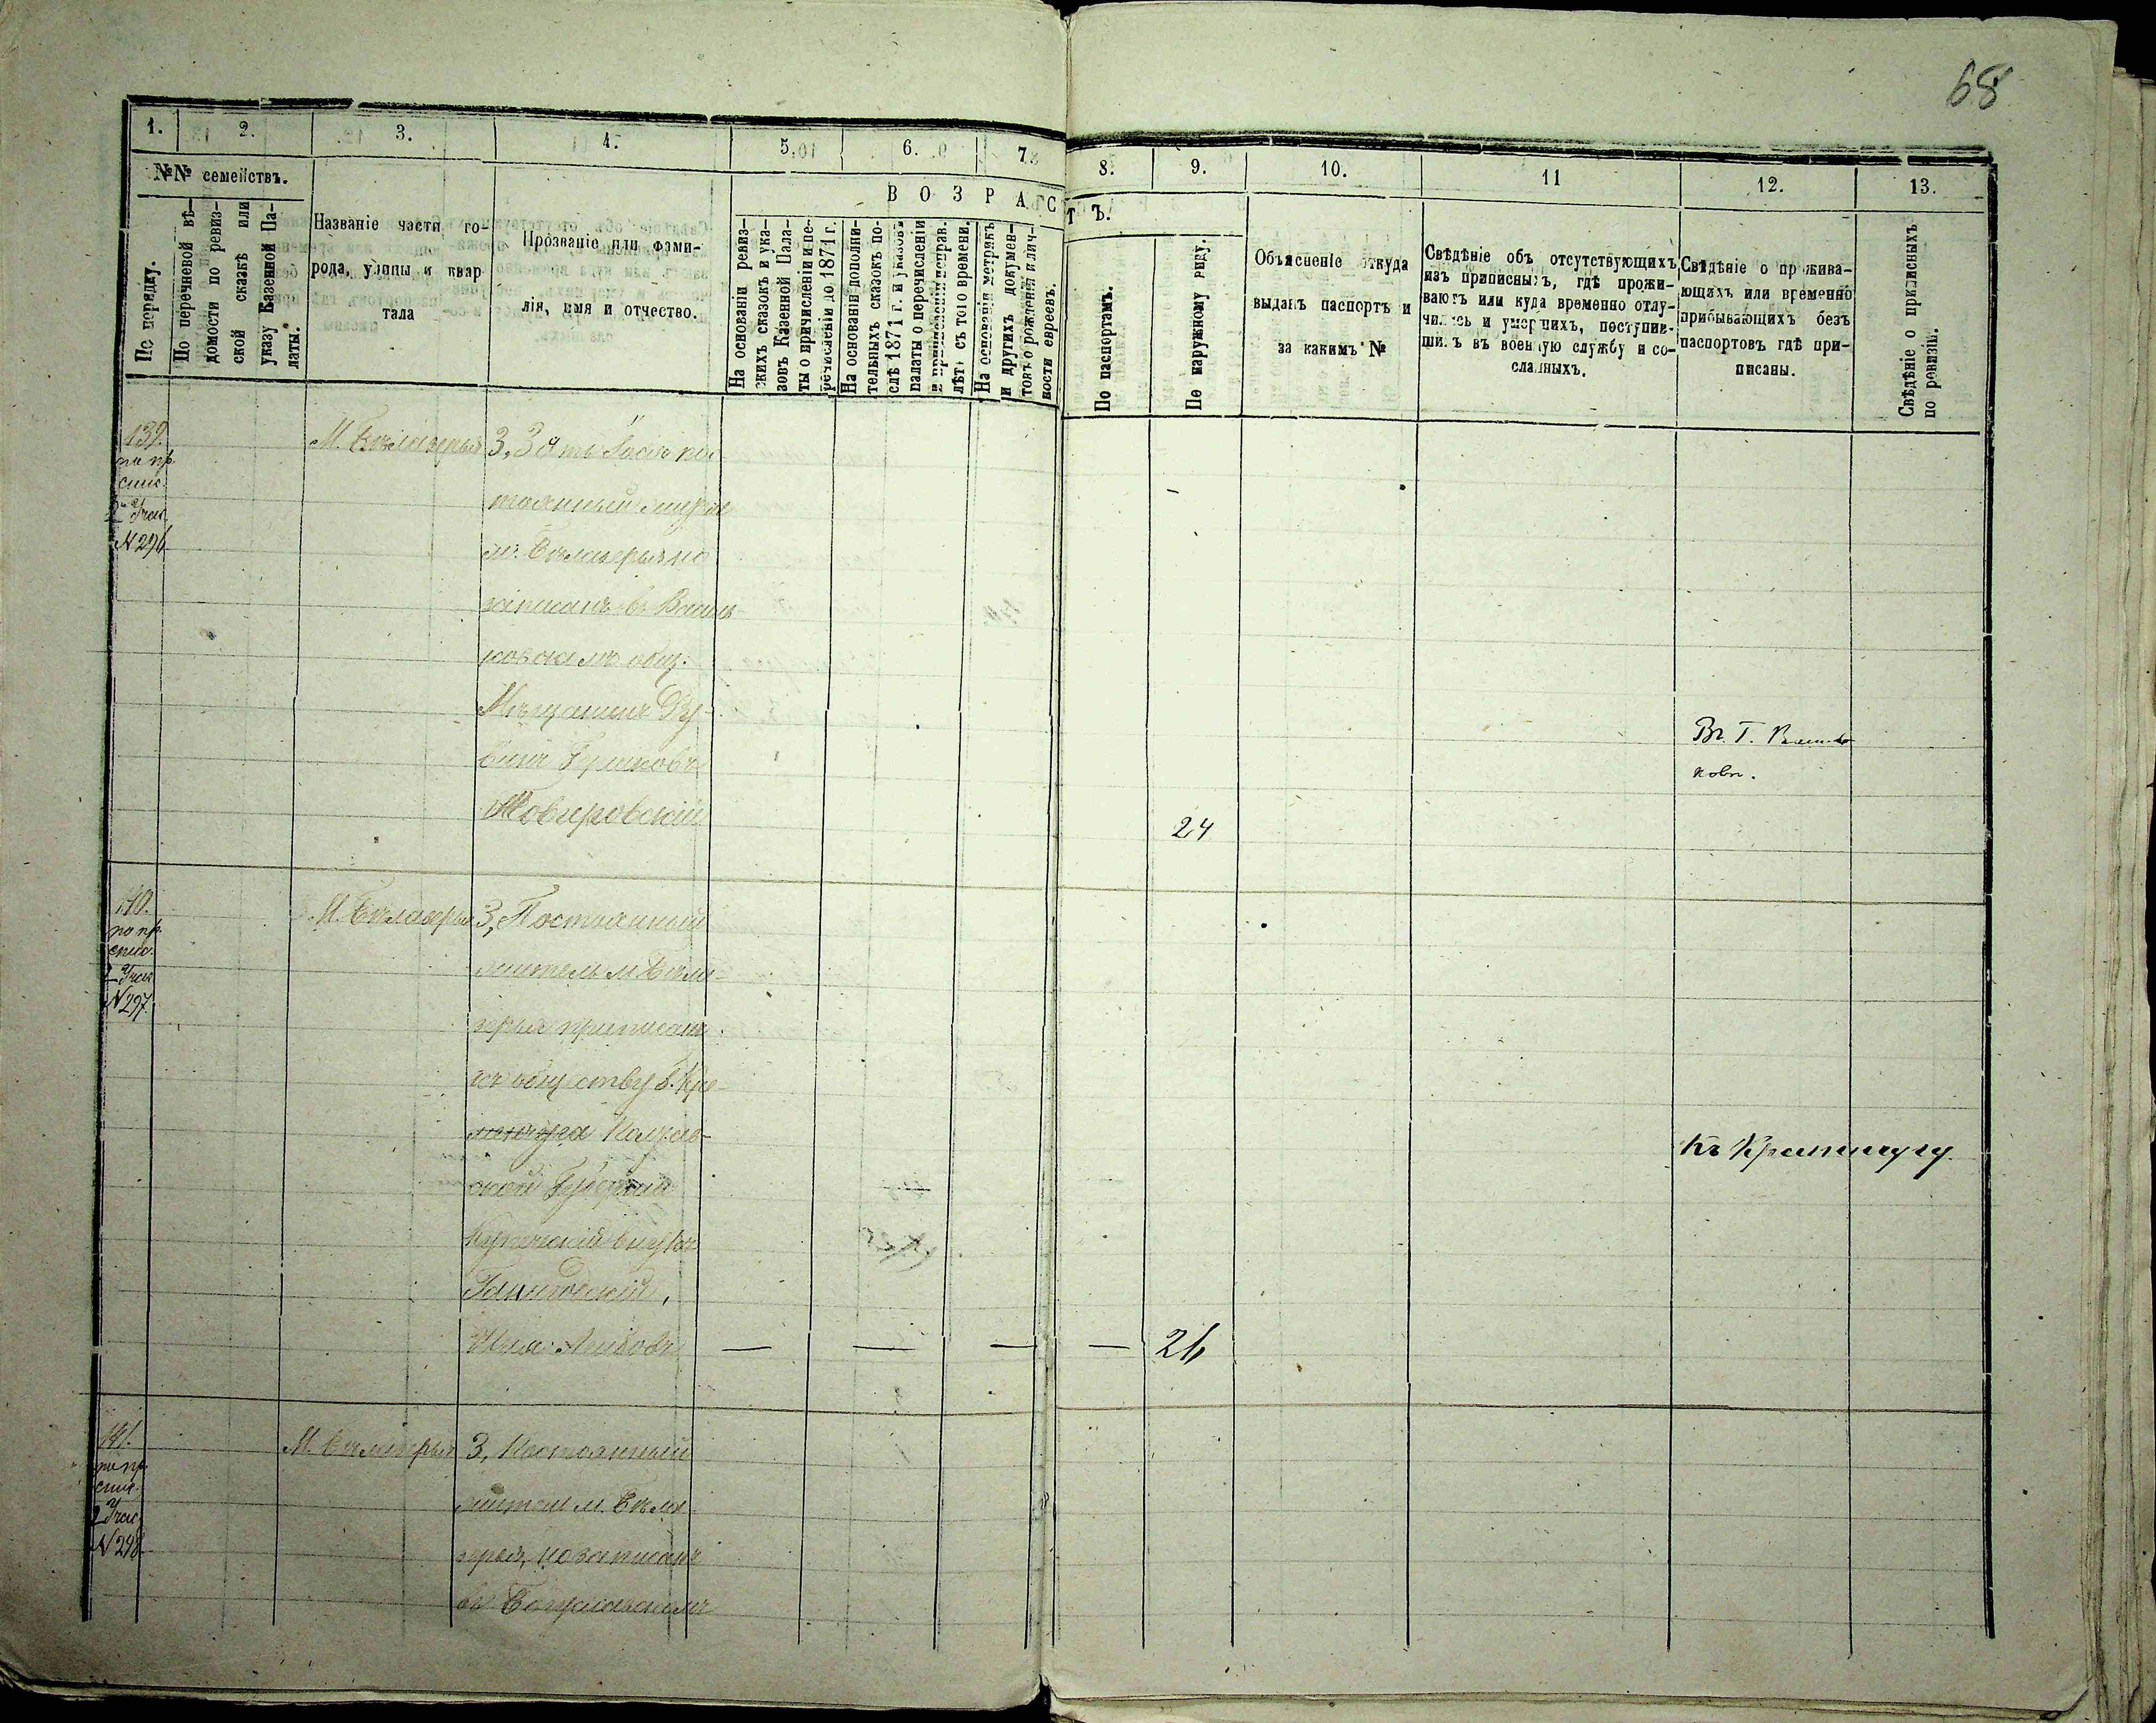 68
1. 2. 3. 4. 5. 6. 7. 8. 9. 10. 11 12. 13.
№№ семействъ.
По порядку.
По перечневой вѣ-
домости по ревиз-
ской сказкѣ или
указу Казенной Па-
латы.
Названіе части го-
рода, улицы и квар
тала
Прозваніе или фами-
лія, имя и отчество.
ВОЗРАСТЪ.
На основаніи ревиз-
скихъ сказокъ и ука-
зовъ Казенной Пала-
ты о причисленіи и пе-
речисленіи до 1871 г.
На основаніи дополни-
тельныхъ сказокъ по-
слѣ 1871 г. и указовъ
палаты о перечисленіи
лѣтъ съ того времени.
На основаніи метрикъ
и другихъ докумен-
товъ о рожденіи и лич-
ности евреевъ.
По паспортамъ.
По наружному виду.
Объясненіе откуда
выданъ паспортъ и
за какимъ №
Свѣдѣніе объ отсутствующихъ
изъ приписныхъ, гдѣ прожи-
ваютъ или куда временно отлу-
чились и умершихъ, поступив-
шихъ въ военную службу и со-
сланныхъ.
Свѣдѣніе о прожива-
ющихъ или временно
прибывающихъ безъ
паспортовъ гдѣ при-
писаны.
Свѣдѣніе о приписныхъ
по ревизіи.
139.
по пр.
спис.
2 Учас
№ 296
М. Бѣлозерья
3,
м. Бѣлозерья но
записанъ в Василь
ковскомъ общ.
Мѣщанинъ
24
Въ Г. Василь
ковѣ.
140.
по пр.
спис.
2 Учас
№ 297.
М. Бѣлозерья
3, Постоянный
житель м Бѣло
зерья приписанъ
къ обществу г. Кре
менчуга Полтав-
ской Губерніи
внукъ
Лейбовъ
— — — — 26
Къ Кременчугу
141.
по пр.
спис.
2 Учас
№ 298
М. Бѣлозерья
3, Постоянный
житель м. Бѣло
зерья, но записанъ
въ Богуславскомъ